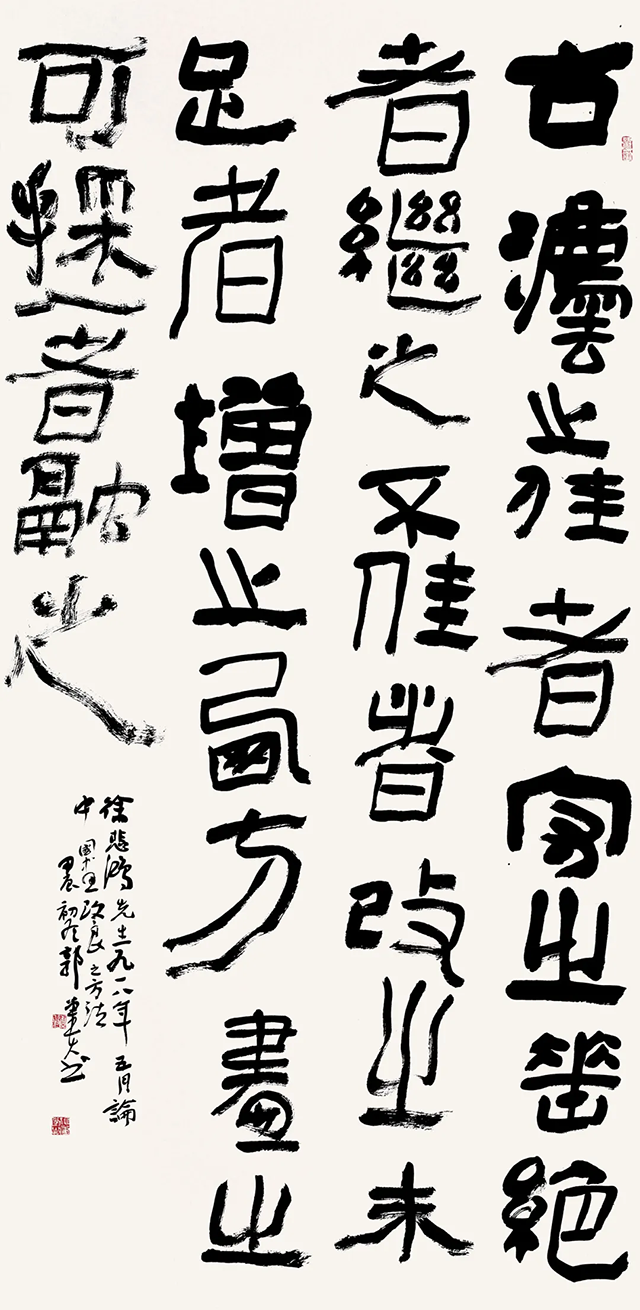 古灋之佳者守之垂絕
者繼之不佳者改之未
足者增之西方畫之
可採入者融之
徐悲鴻先生一九一八年五月論
中國畫改良之方法
初冬郭